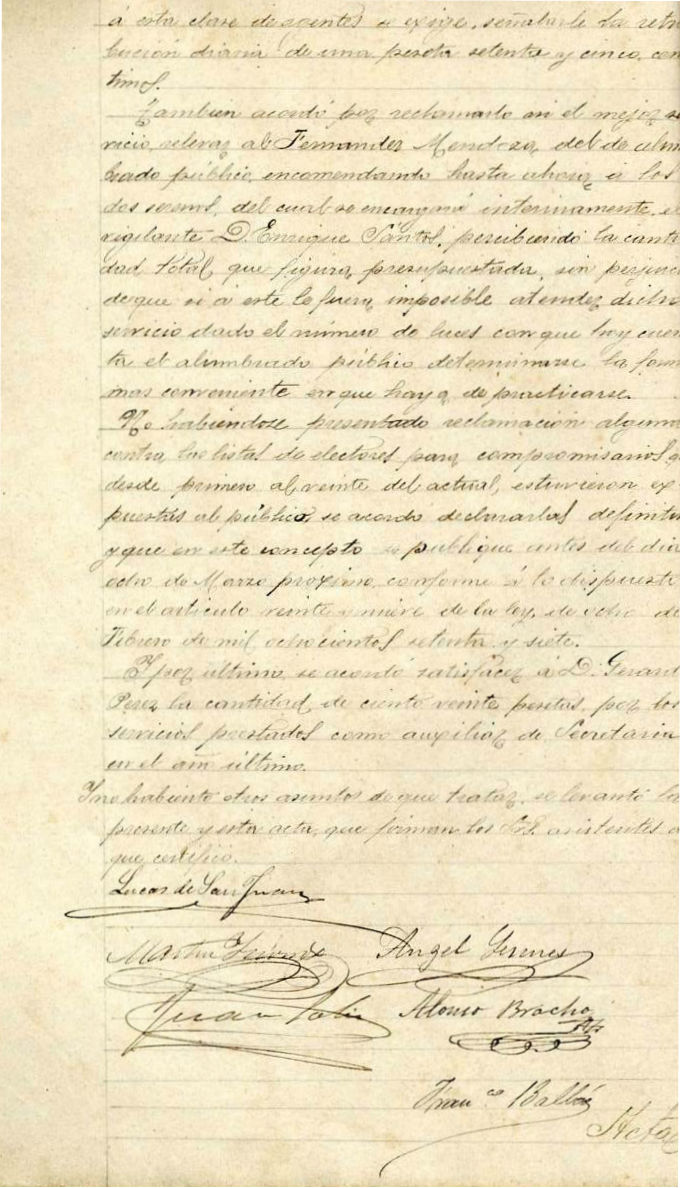 á esta clase de agentes se exige, señalarle la retri
bución diaria de una peseta setenta y cinco cen
timos.
Tambien acordó por reclamarlo asi el mejor se
vicio, relevar al Fernandez Mendoza, del de alum
brado público, encomendando hasta ahora á los
dos serenos, del cual se encargará interinamente, el
vigilante D. Enrique Santos, percibiendo la canti
dad total que figura presupuestada, sin perjuic
de que si á este le fuera imposible atender dicho
servicio dado el número de luces con que hoy cuen
ta el alumbrado público determinarse la form
mas conveniente en que haya de practicarse.
No habiéndose presentado reclamación alguna
contra las listas de electores para compromisarios q
desde primero al veinte del actual, estuvieron ex
puestas al público, se acordo declararlas definitiv
y que en este concepto se publique antes del dia
ocho de Marzo proximo, conforme á lo dispuesto
en el articulo veinte y nueve de la ley, de ocho de
Febrero de mil ochocientos setenta y siete.
Y por último, se acordó satisfacer á D. Gerard
Perez la cantidad, de ciento veinte pesetas, por los
servicios prestados como auxiliar de Secretaria
en el año último.
Y no habiento otros asuntos de que tratar, se levantó la
presente y esta acta, que firman los Srs. asistentes d
que certifico.
Lucas de San Juan
Martin
Angel
Juan
Alonso Bracho
Fran.co
Acta